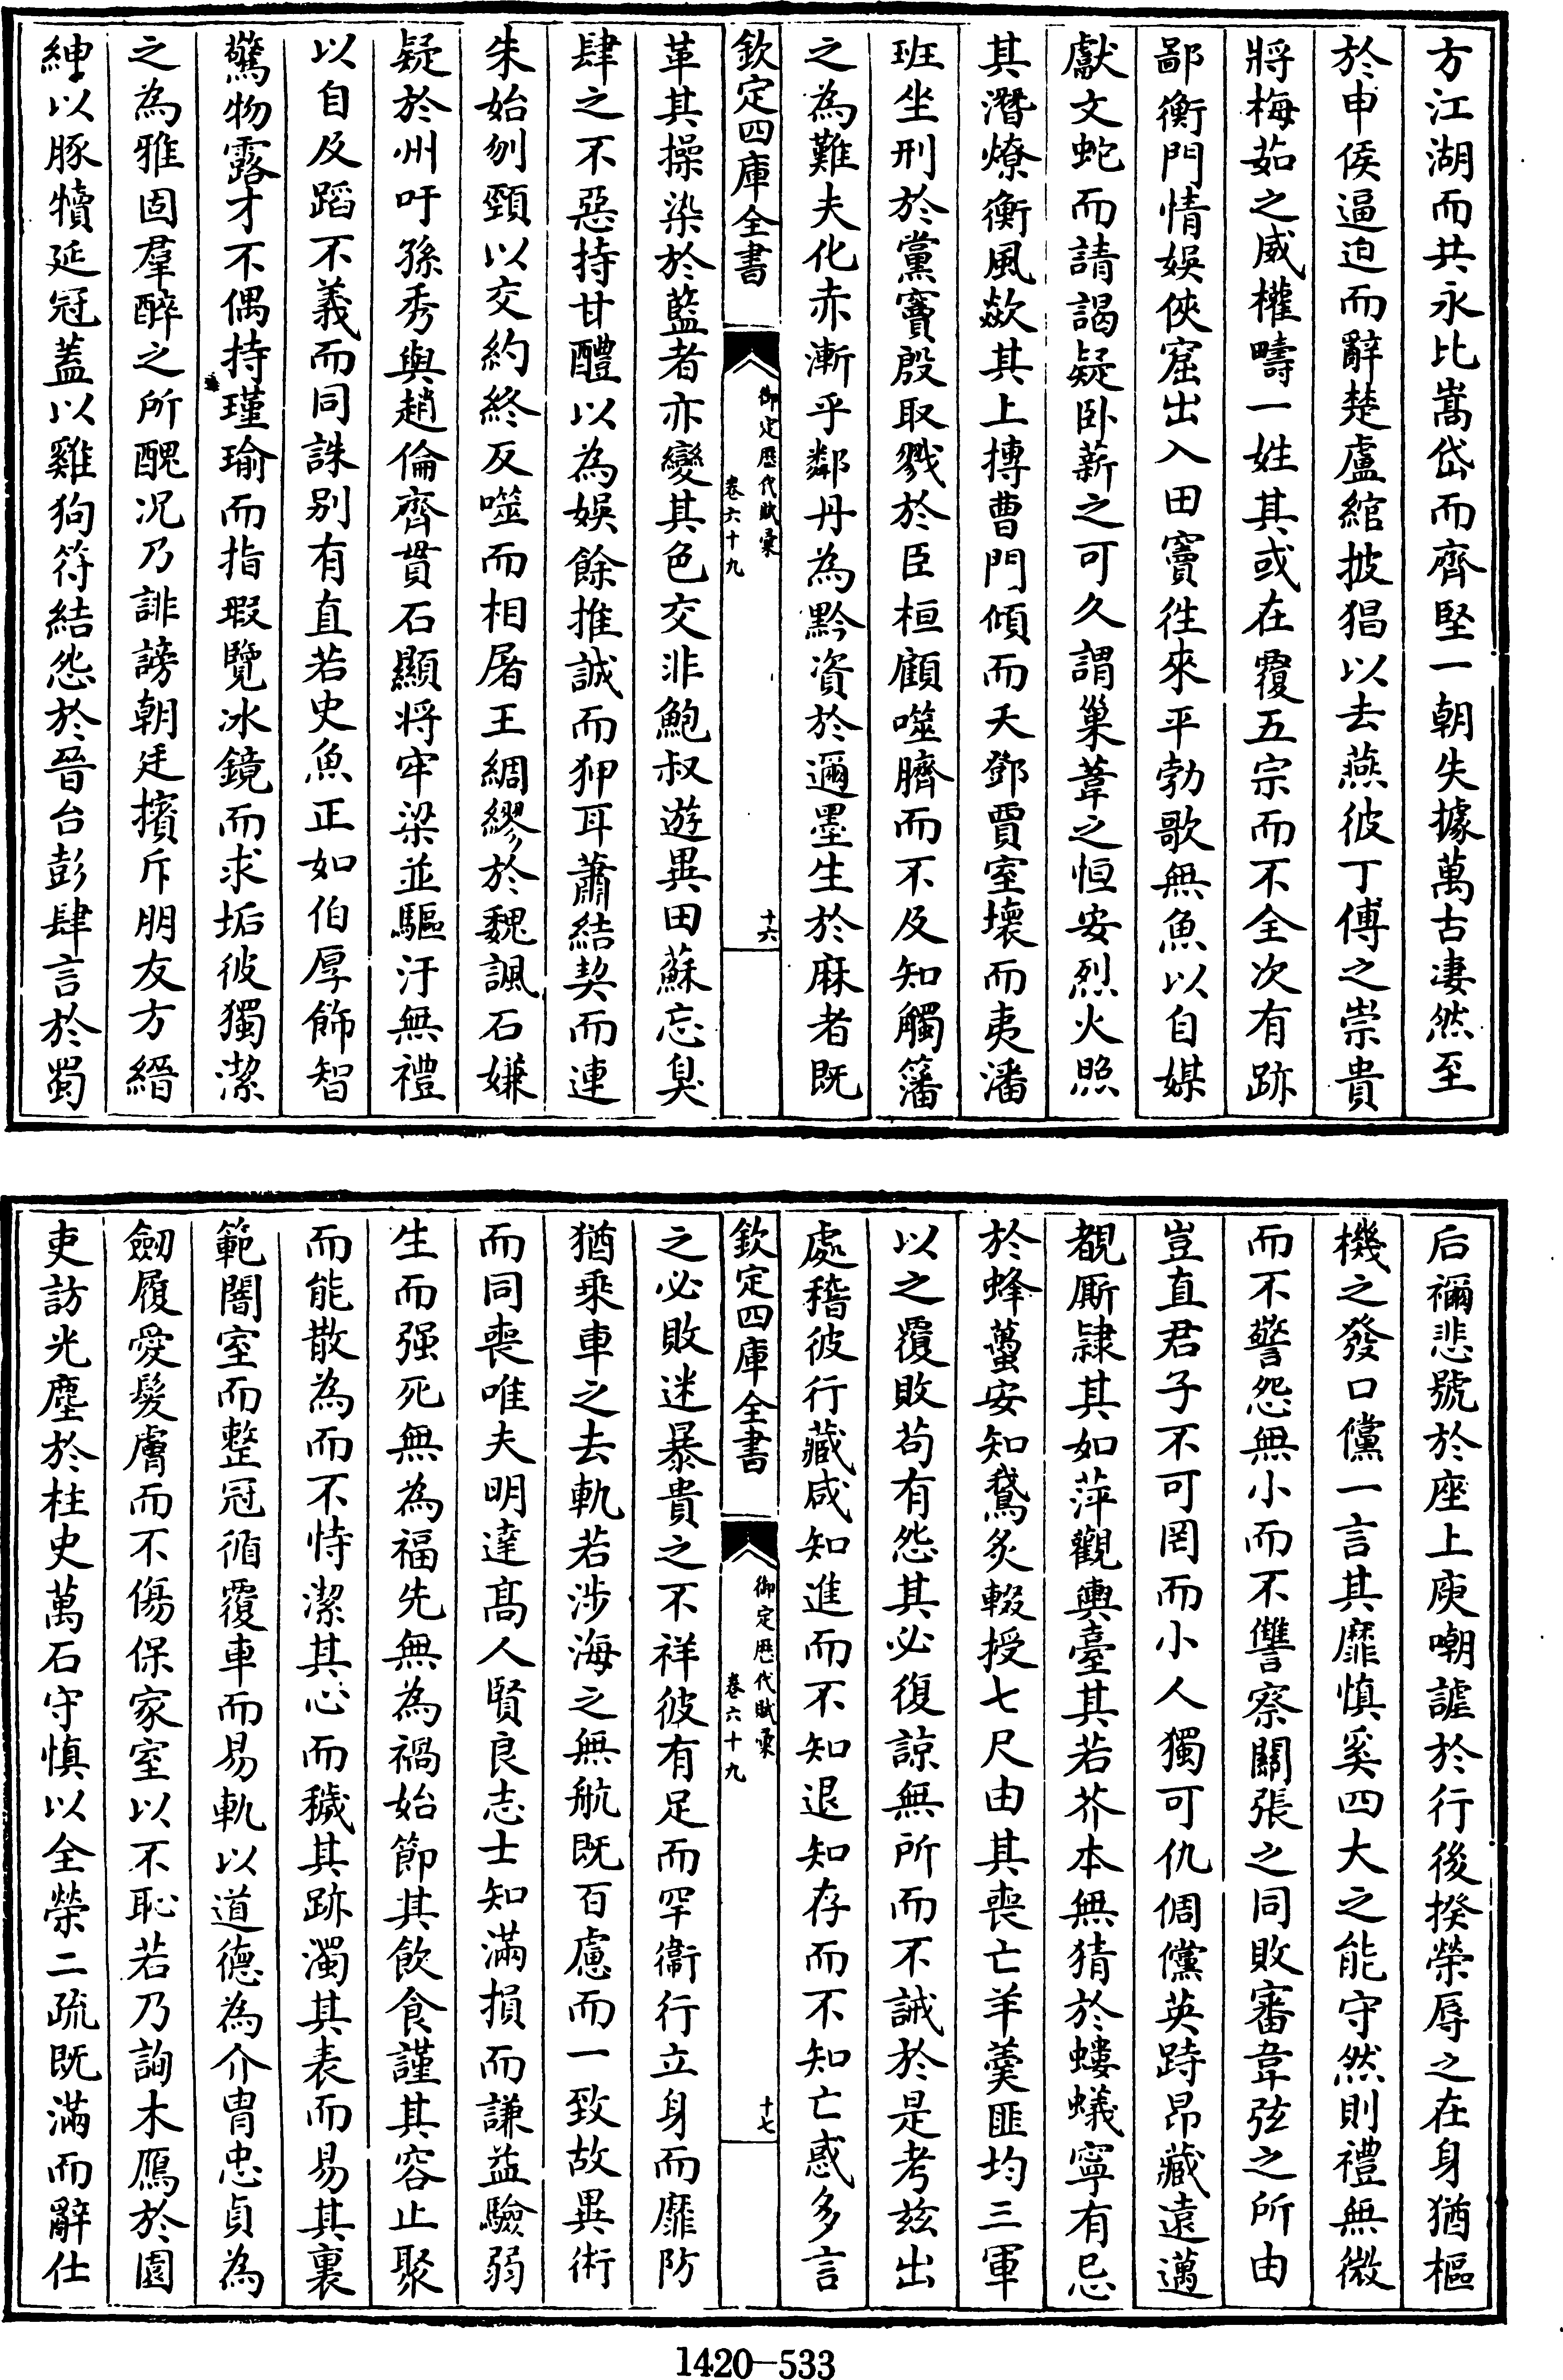 方江湖而共永比嵩岱而齊堅一朝失據萬古凄然至
於申侯逼迫而辭楚盧綰披猖以去燕彼丁傅之崇貴
將梅茹之威權疇一姓其或在覆五宗而不全次有跡
鄙衡門情娛俠窟出入田竇徃來平勃歌無魚以自媒
獻文蛇而請謁疑卧薪之可久謂巢葦之恒安烈火照
其潛燎衡風欻其上摶曹門傾而夭鄧賈室壞而夷潘
班坐刑於黨竇殷取戮於臣桓顧噬臍而不及知觸藩
之為難夫化赤漸乎鄰丹為黔資於邇墨生於麻者既
欽定四庫全書
御定歷代賦彙
卷六十九
十六
革其操染於藍者亦變其色交非鮑叔遊異田蘇忘臭
肆之不惡持甘醴以為娛餘推誠而狎耳蕭結契而連
朱始刎頸以交約終反噬而相屠王綢繆於魏諷石嫌
疑於州吁孫秀與趙倫齊貫石顯將牢梁並驅汙無禮
以自及蹈不義而同誅别有直若史魚正如伯厚飾智
驚物露才不偶持瑾瑜而指瑕覽冰鏡而求垢彼獨潔
之為雅固羣醉之所醜况乃誹謗朝廷擯斥朋友方縉
紳以豚犢延冠蓋以雞狗符結怨於晉台彭肆言於蜀
后禰悲號於座上庾嘲謔於行後揆榮辱之在身猶樞
機之發口儻一言其靡慎奚四大之能守然則禮無微
而不警怨無小而不讐察關張之同敗審韋弦之所由
豈直君子不可罔而小人獨可仇倜儻英跱昂藏遠邁
覩厮隷其如萍觀輿臺其若芥本無猜於螻蟻寧有忌
於蜂蠆安知鵞炙輟授七尺由其喪亡羊羮匪均三軍
以之覆敗苟有怨其必復諒無所而不誡於是考兹出
處稽彼行藏咸知進而不知退知存而不知亡惑多言
欽定四庫全書
御定歷代賦彙
卷六十九
十七
之必敗迷暴貴之不祥彼有足而罕衞行立身而靡防
猶乘車之去軌若涉海之無航既百慮而一致故異術
而同喪唯夫明達髙人賢良志士知滿損而謙益驗弱
生而强死無為福先無為禍始節其飲食謹其容止聚
而能散為而不恃潔其心而穢其跡濁其表而易其裏
範闇室而整冠循覆車而易軌以道德為介胄忠貞為
劒履愛髮膚而不傷保家室以不恥若乃詢木鴈於園
吏訪光塵於柱史萬石守慎以全榮二疏既滿而辭仕
1420-533